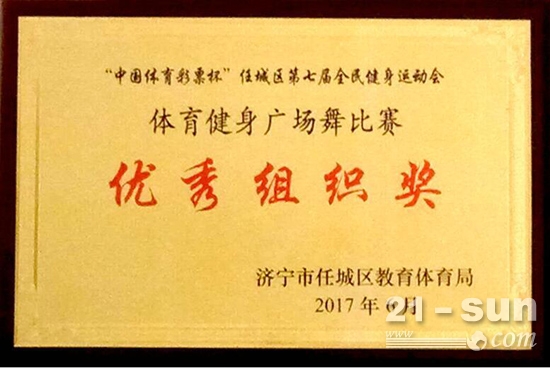 “中国体育彩票杯”任城区第七届全民健身运动会
体育健身广场舞比赛
优秀组织奖
济宁市任城区教育体育局
2017 年 6月
21-sun
www. .com